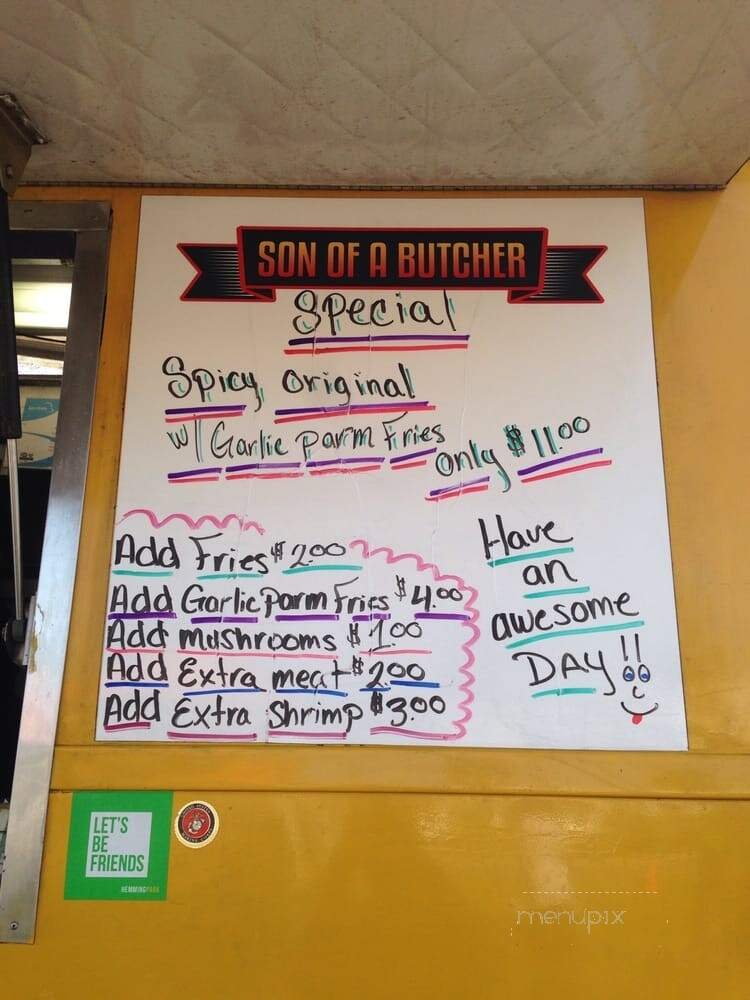 SON OF A BUTCHER
Special
Spicy, original
w/ Garlic parm Fries
only $11.00
Add Fries $2.00
Add Garlic Parm Fries $4.00
Add mushrooms $1.00
Add Extra meat $2.00
Add Extra Shrimp $3.00
Have
an
awesome
DAY!!
LET'S
BE
FRIENDS
HEMMINGPARK
menupix